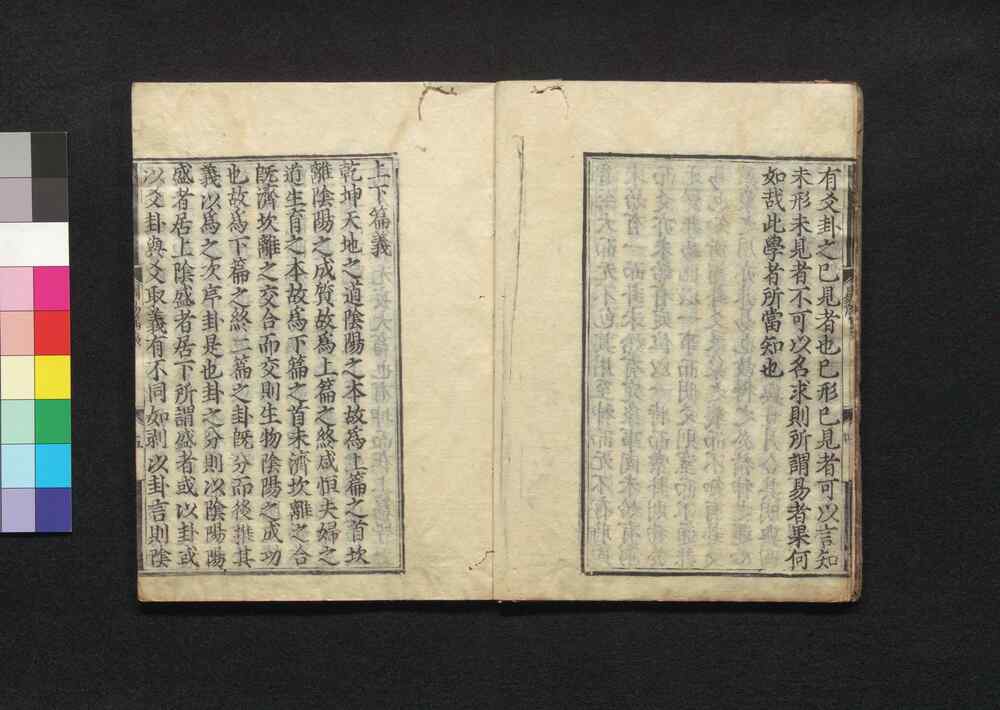 有爻卦之已見者也已形已見者可以言知
未形未見者不可以名求則所謂易者果何
如哉此學者所當知也
上下篇義
乾坤天地之道陰陽之本故爲上篇之首坎
離陰陽之成質故爲上篇之終咸恒夫婦之
道生育之本故爲下篇之首未濟坎離之合
旣濟坎離之交合而交則生物陰陽之成功
也故爲下篇之終二篇之卦旣分而後推其
義以爲之次序卦是也卦之分則以陰陽陽
盛者居上陰盛者居下所謂盛者或以卦或
以爻卦與爻取義有不同如剥以卦言則陰